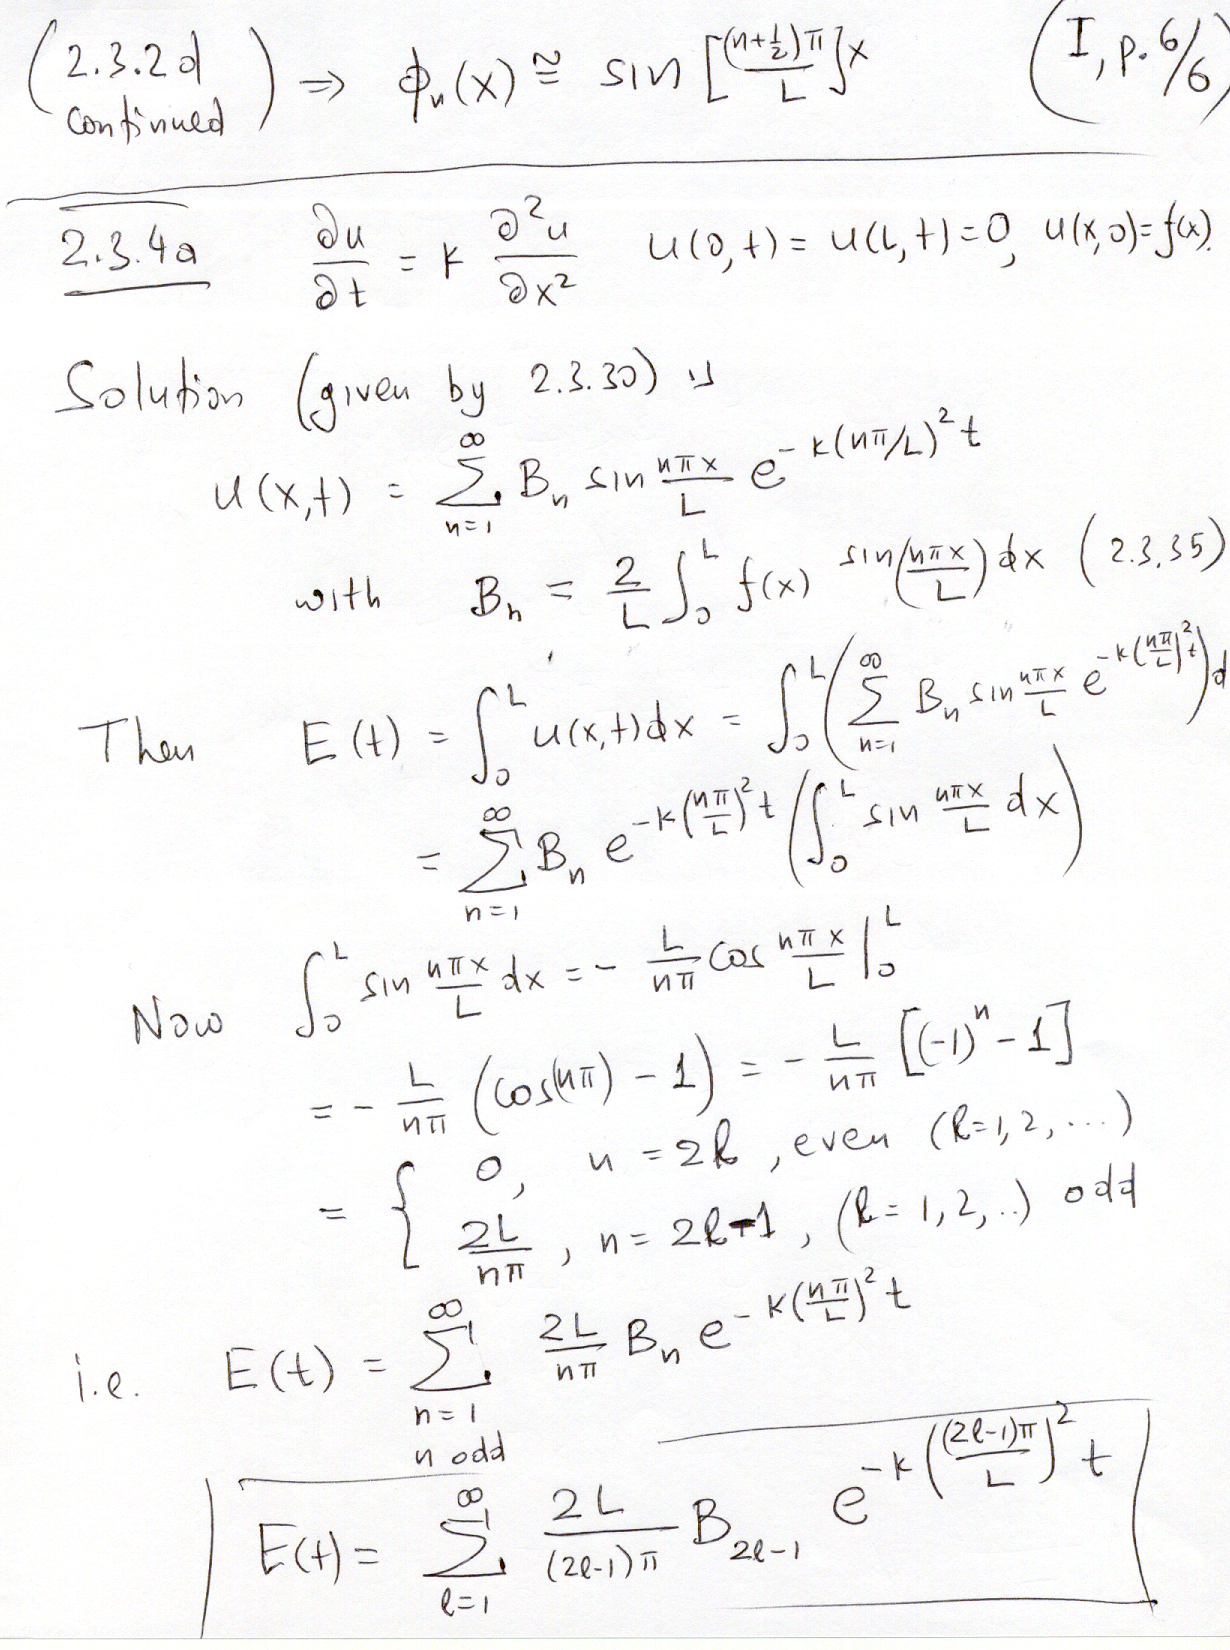 (2.3.2d continued) ⇒ φₙ(x) ≅ sin [(n+½)π/L]x (I, p. 6/6)
2.3.4a ∂u/∂t = k ∂²u/∂x² u(0,t) = u(L,t) = 0, u(x,0)=f(x).
Solution (given by 2.3.30) is
u(x,t) = ∑_{n=1}^{∞} Bₙ sin nπx/L e^{-k(nπ/L)²t}
with Bₙ = 2/L ∫₀ᴸ f(x) sin(nπx/L) dx (2.3.35)
Then E(t) = ∫₀ᴸ u(x,t)dx = ∫₀ᴸ (∑_{n=1}^{∞} Bₙ sin nπx/L e^{-k(nπ/L)²t}) d
= ∑_{n=1}^{∞} Bₙ e^{-k(nπ/L)²t} (∫₀ᴸ sin nπx/L dx)
Now ∫₀ᴸ sin nπx/L dx = - L/nπ cos nπx/L |₀ᴸ
= - L/nπ (cos(nπ) - 1) = - L/nπ [(-1)ⁿ - 1]
= { 0, n = 2ℓ, even (ℓ=1,2,...)
2L/nπ, n = 2ℓ-1, (ℓ = 1,2,..) odd
i.e. E(t) = ∑_{n=1, n odd}^{∞} 2L/nπ Bₙ e^{-k(nπ/L)²t}
E(t) = ∑_{ℓ=1}^{∞} 2L/(2ℓ-1)π B_{2ℓ-1} e^{-k((2ℓ-1)π/L)²t}